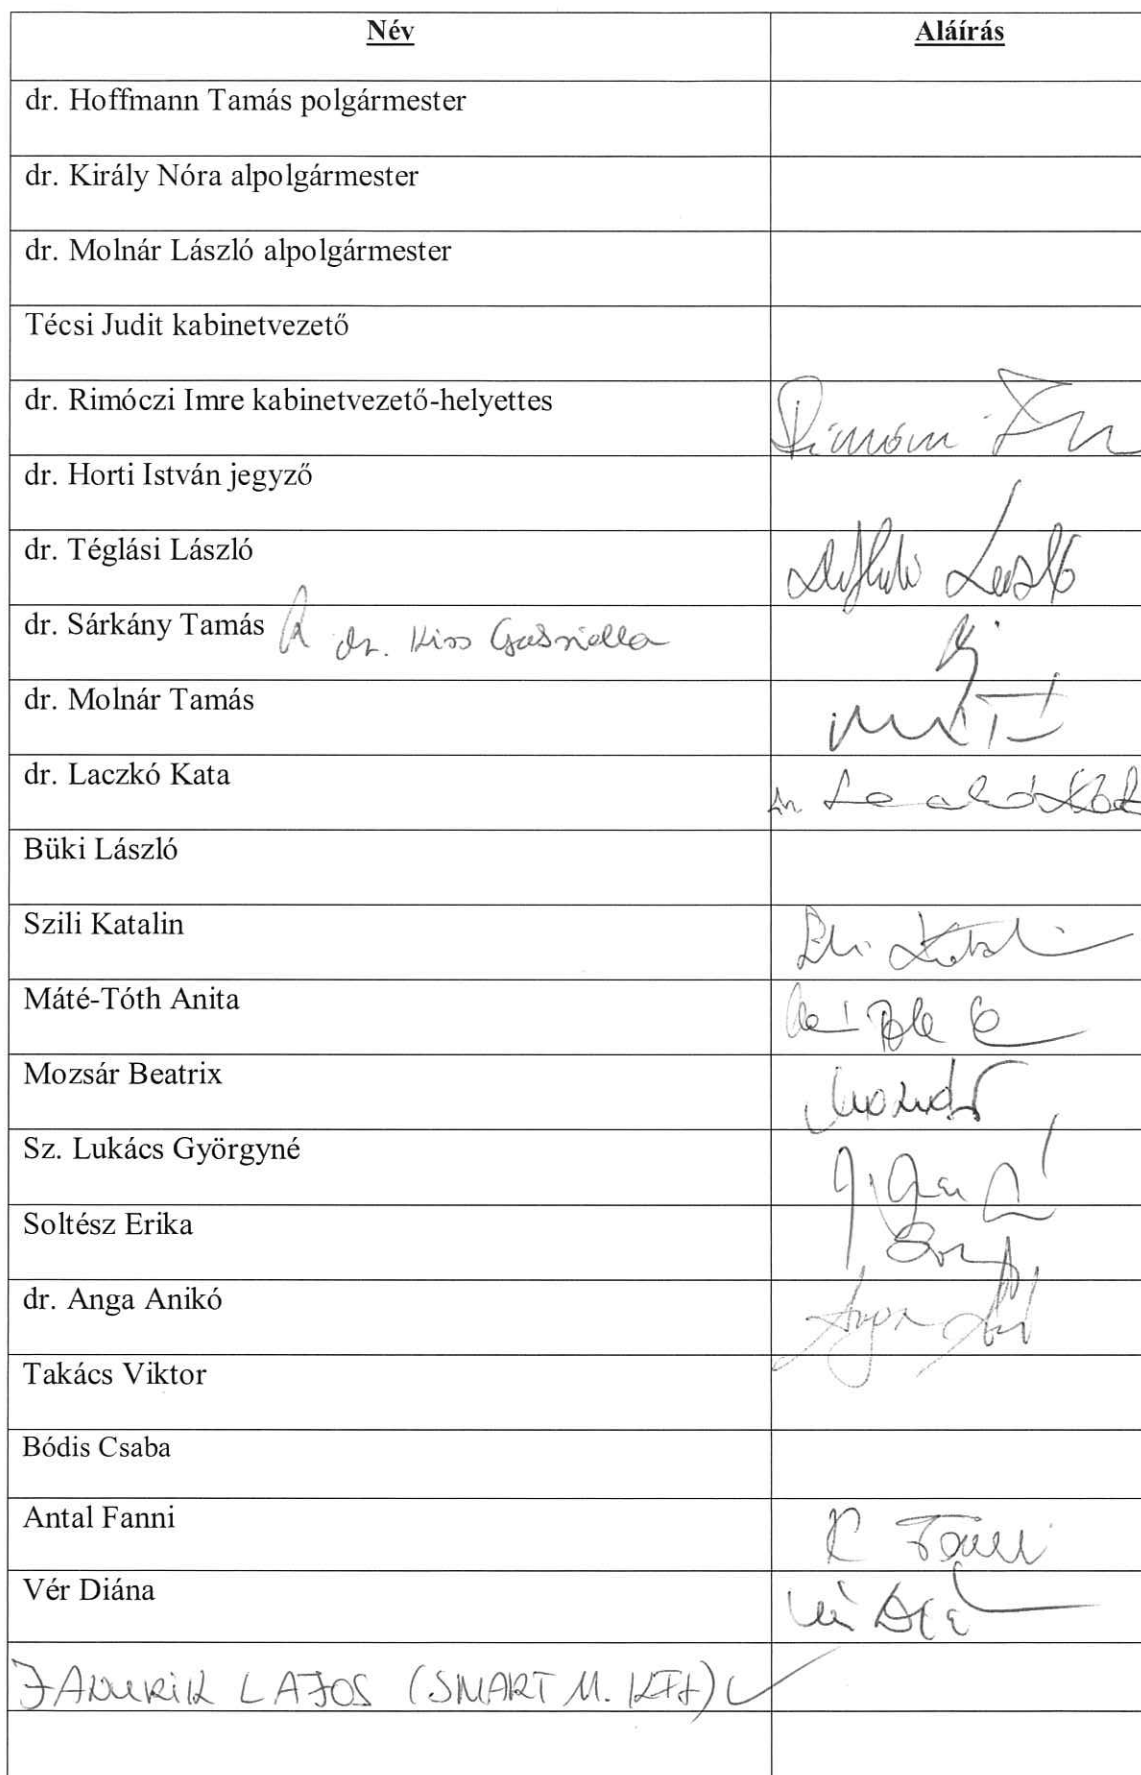 Név Aláírás
dr. Hoffmann Tamás polgármester
dr. Király Nóra alpolgármester
dr. Molnár László alpolgármester
Técsi Judit kabinetvezető
dr. Rimóczi Imre kabinetvezető-helyettes
dr. Horti István jegyző
dr. Téglási László László
dr. Sárkány Tamás dr. Kiss Gabriella
dr. Molnár Tamás
dr. Laczkó Kata
Büki László
Szili Katalin
Máté-Tóth Anita
Mozsár Beatrix
Sz. Lukács Györgyné
Soltész Erika
dr. Anga Anikó
Takács Viktor
Bódis Csaba
Antal Fanni Fanni
Vér Diána
LAJOS (SMART M. KFt)